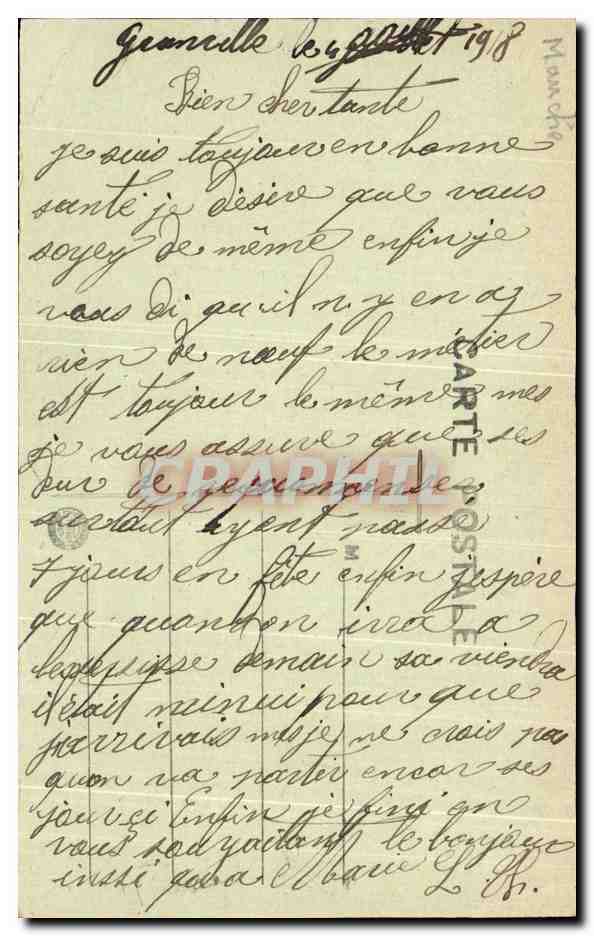 Granville le 4 1918
Manche
Bien cher tante
je suis toujour en bonne
santé je désire que vous
soyez de même enfin je
vous di qu'il n y en a
rien de nœuf le métier
est toujour le même mes
je vous assure que ses
dur de
surtout ayent
7 jours en fête enfin j'espère
que quandon irra a
demain sa viendra
il était minui pour que
j'arrivais mes je ne crois pas
quon va partir encor ses
jour çi Enfin je fini en
vous souyaitant le bonjour
inssi qua Marie L. Ch.
CARTE POSTALE
M
CRAPHIL